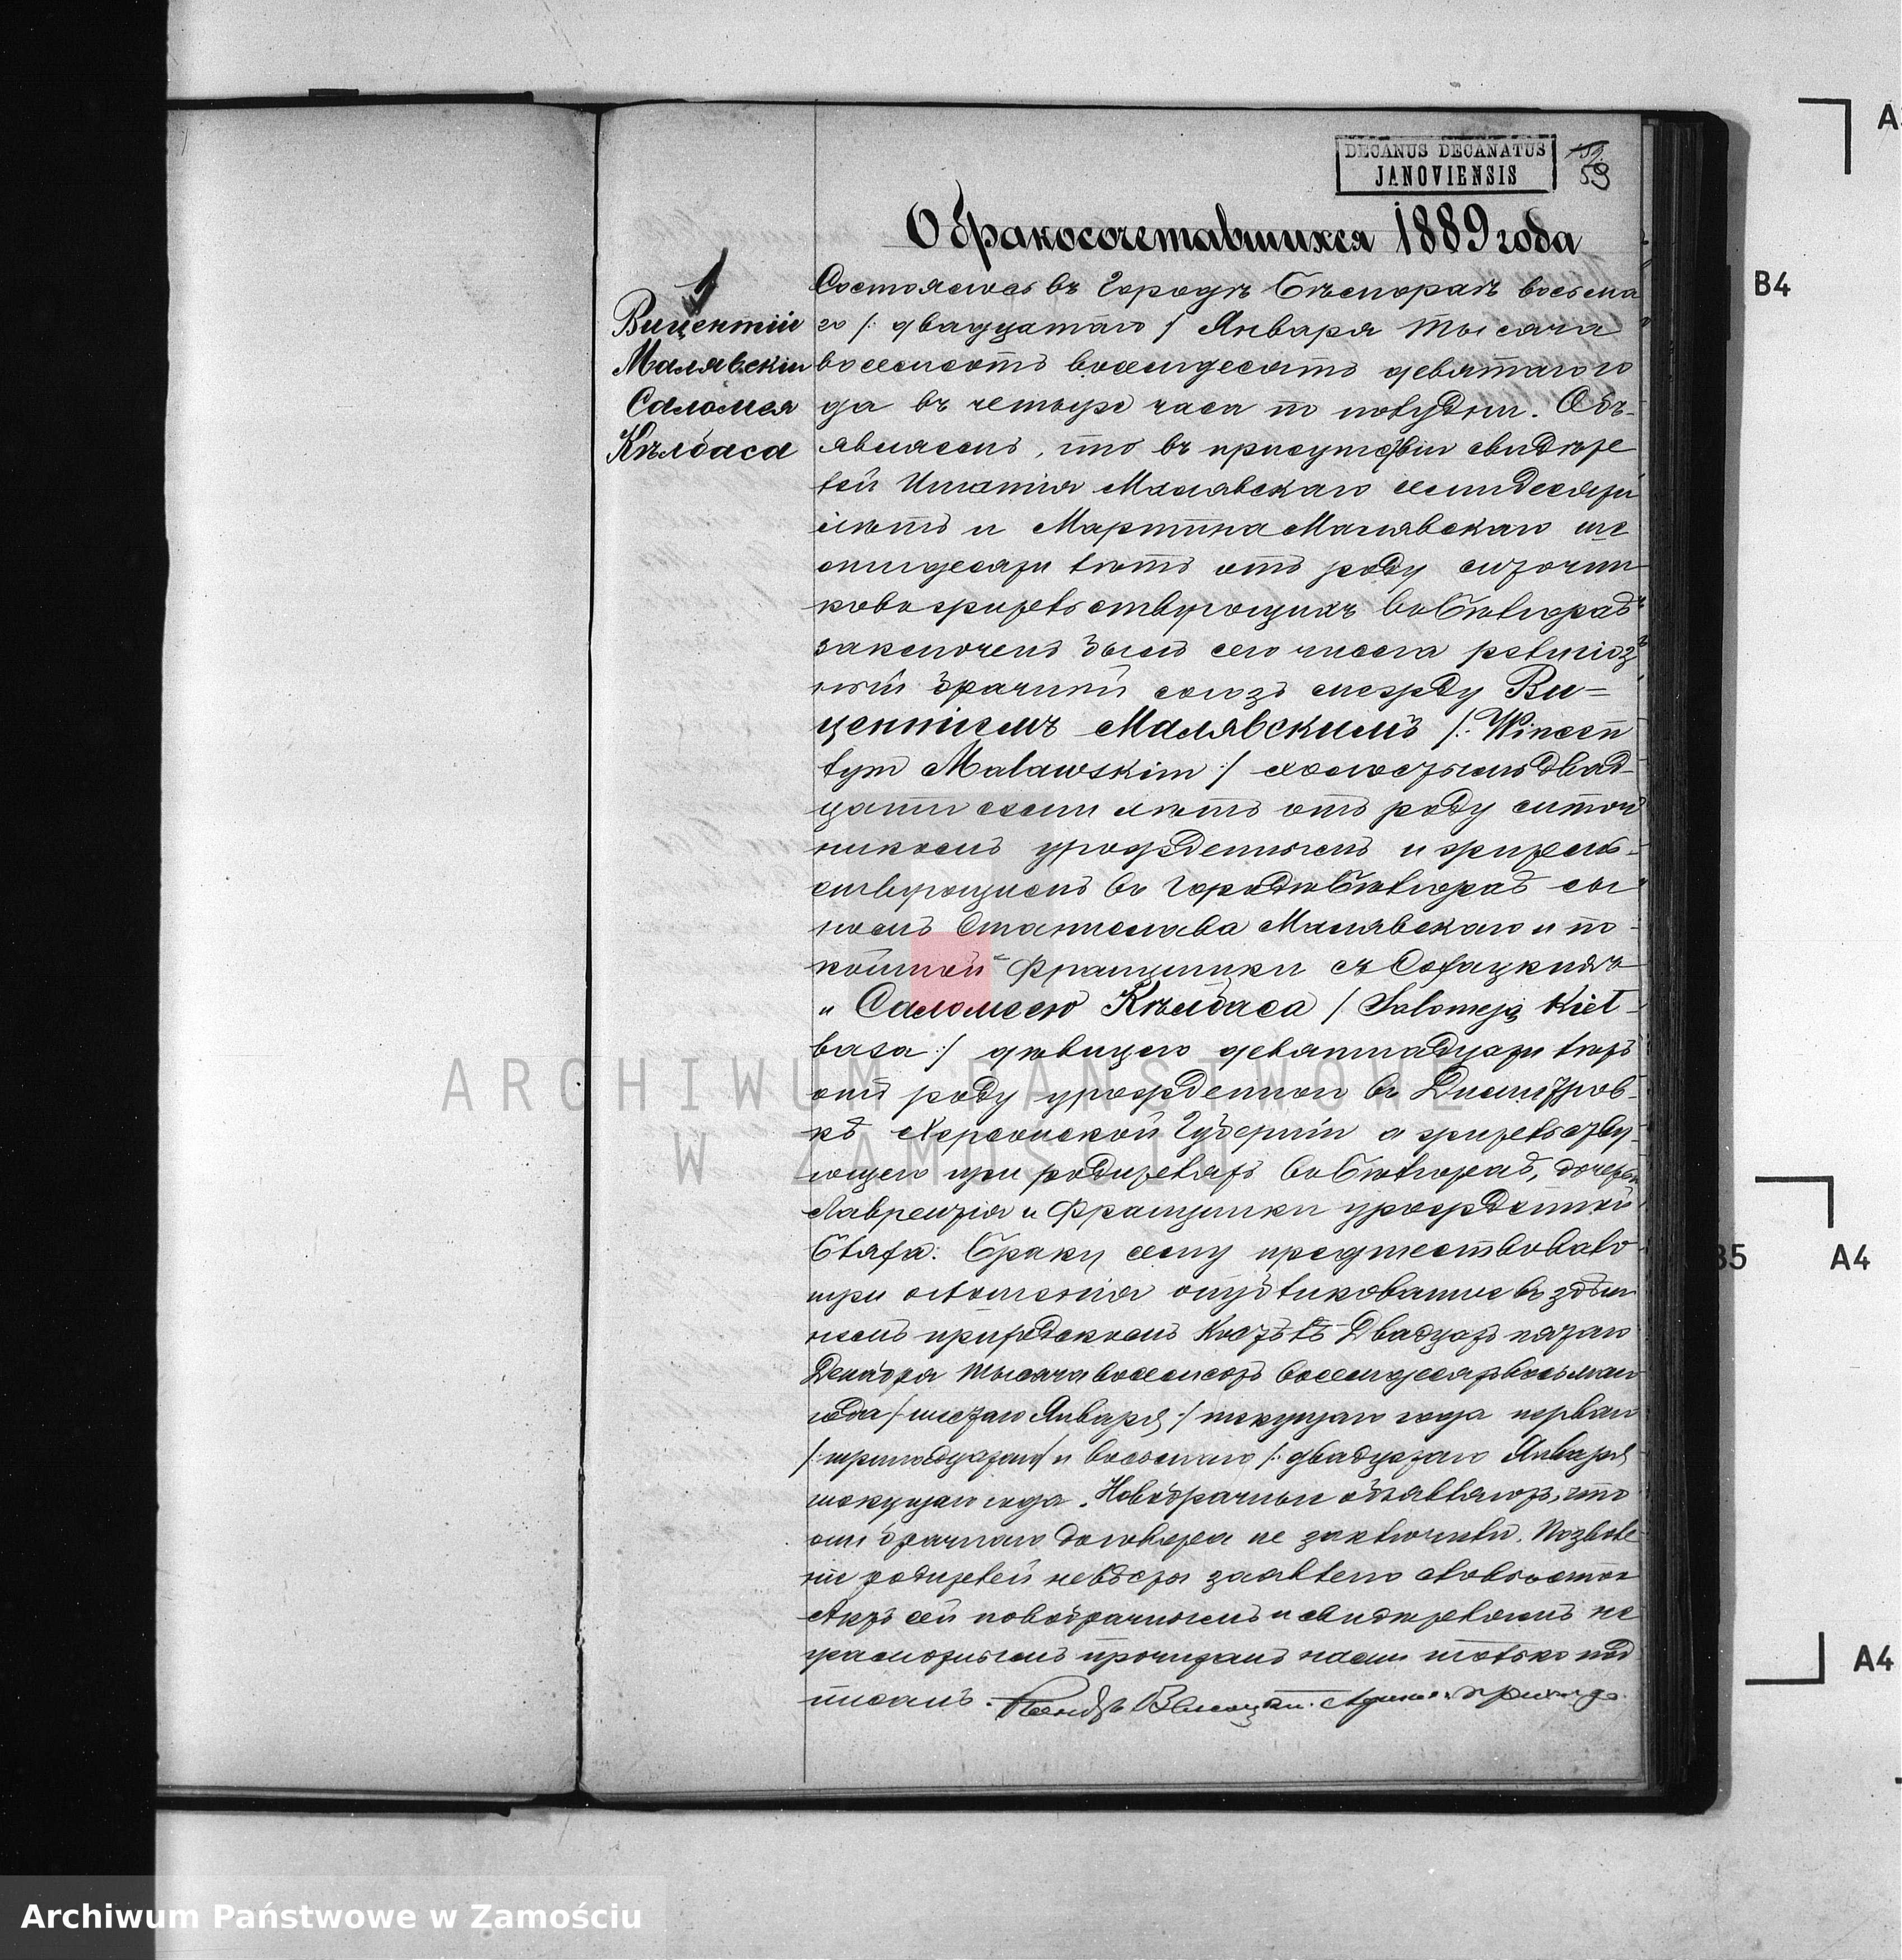 DECANUS DECANATUS
JANOVIENSIS
59
О бракосочетавшихся 1889 года
1
Вицентій
Малявскій
Саломея
Кѣлбаса
Состоялось въ Городѣ Бѣлгораѣ восьма
го /: двадцатаго / Января тысяча
восемьсотъ восемдесятъ девятаго го
да въ четыре часа по полудни. Объ-
являемъ, что въ присутствіи свидѣте
лей Игнатія Малявскаго семидесяти
лѣтъ и Мартина Малявскаго ше
стидесяти лѣтъ отъ роду ситочни
ковъ жительствующихъ въ Бѣлгораѣ
заключенъ былъ сего числа религіоз
ный брачный союзъ между Ви=
центіемъ Малявскимъ /: Wincen
tym Malawskim :/ холостымъ двад-
цати семи лѣтъ отъ роду ситоч
никомъ урожденнымъ и житель-
ствующимъ въ Городѣ Бѣлгораѣ сы
номъ Станислава Малявскаго и по-
койной Францишки съ
и Саломеею Кѣлбаса / Salomeją Kieł-
basa :/ дѣвицею девятнадцати лѣтъ
отъ роду урожденной въ Дмитров-
кѣ Херсонской Губерніи а жительству-
ющею при родителяхъ въ Бѣлгораѣ, дочерью
Лаврентія и Францишки урожденной
Браку сему предшествовало
три оглашенія опубликованные въ здѣш
немъ приходскомъ Костелѣ Двадцать пятаго
Декабря тысяча восемьсотъ восемдесятъ восьмаго
года / шестаго Января :/ текущаго года перваго
/: тринадцатаго / и восьмаго /: двадцатаго Января
текущаго года. Новобрачные объявляютъ, что
они брачнаго договора не заключили. Позволе
ніе родителей невѣсты заявлено словесно
Актъ сей новобрачнымъ и свидѣтелямъ не
грамотнымъ прочитанъ нами только под
писанъ.
ARCHIWUM PAŃSTWOWE
W ZAMOŚCIU
A3
B4
B5
A4
A4
Archiwum Państwowe w Zamościu